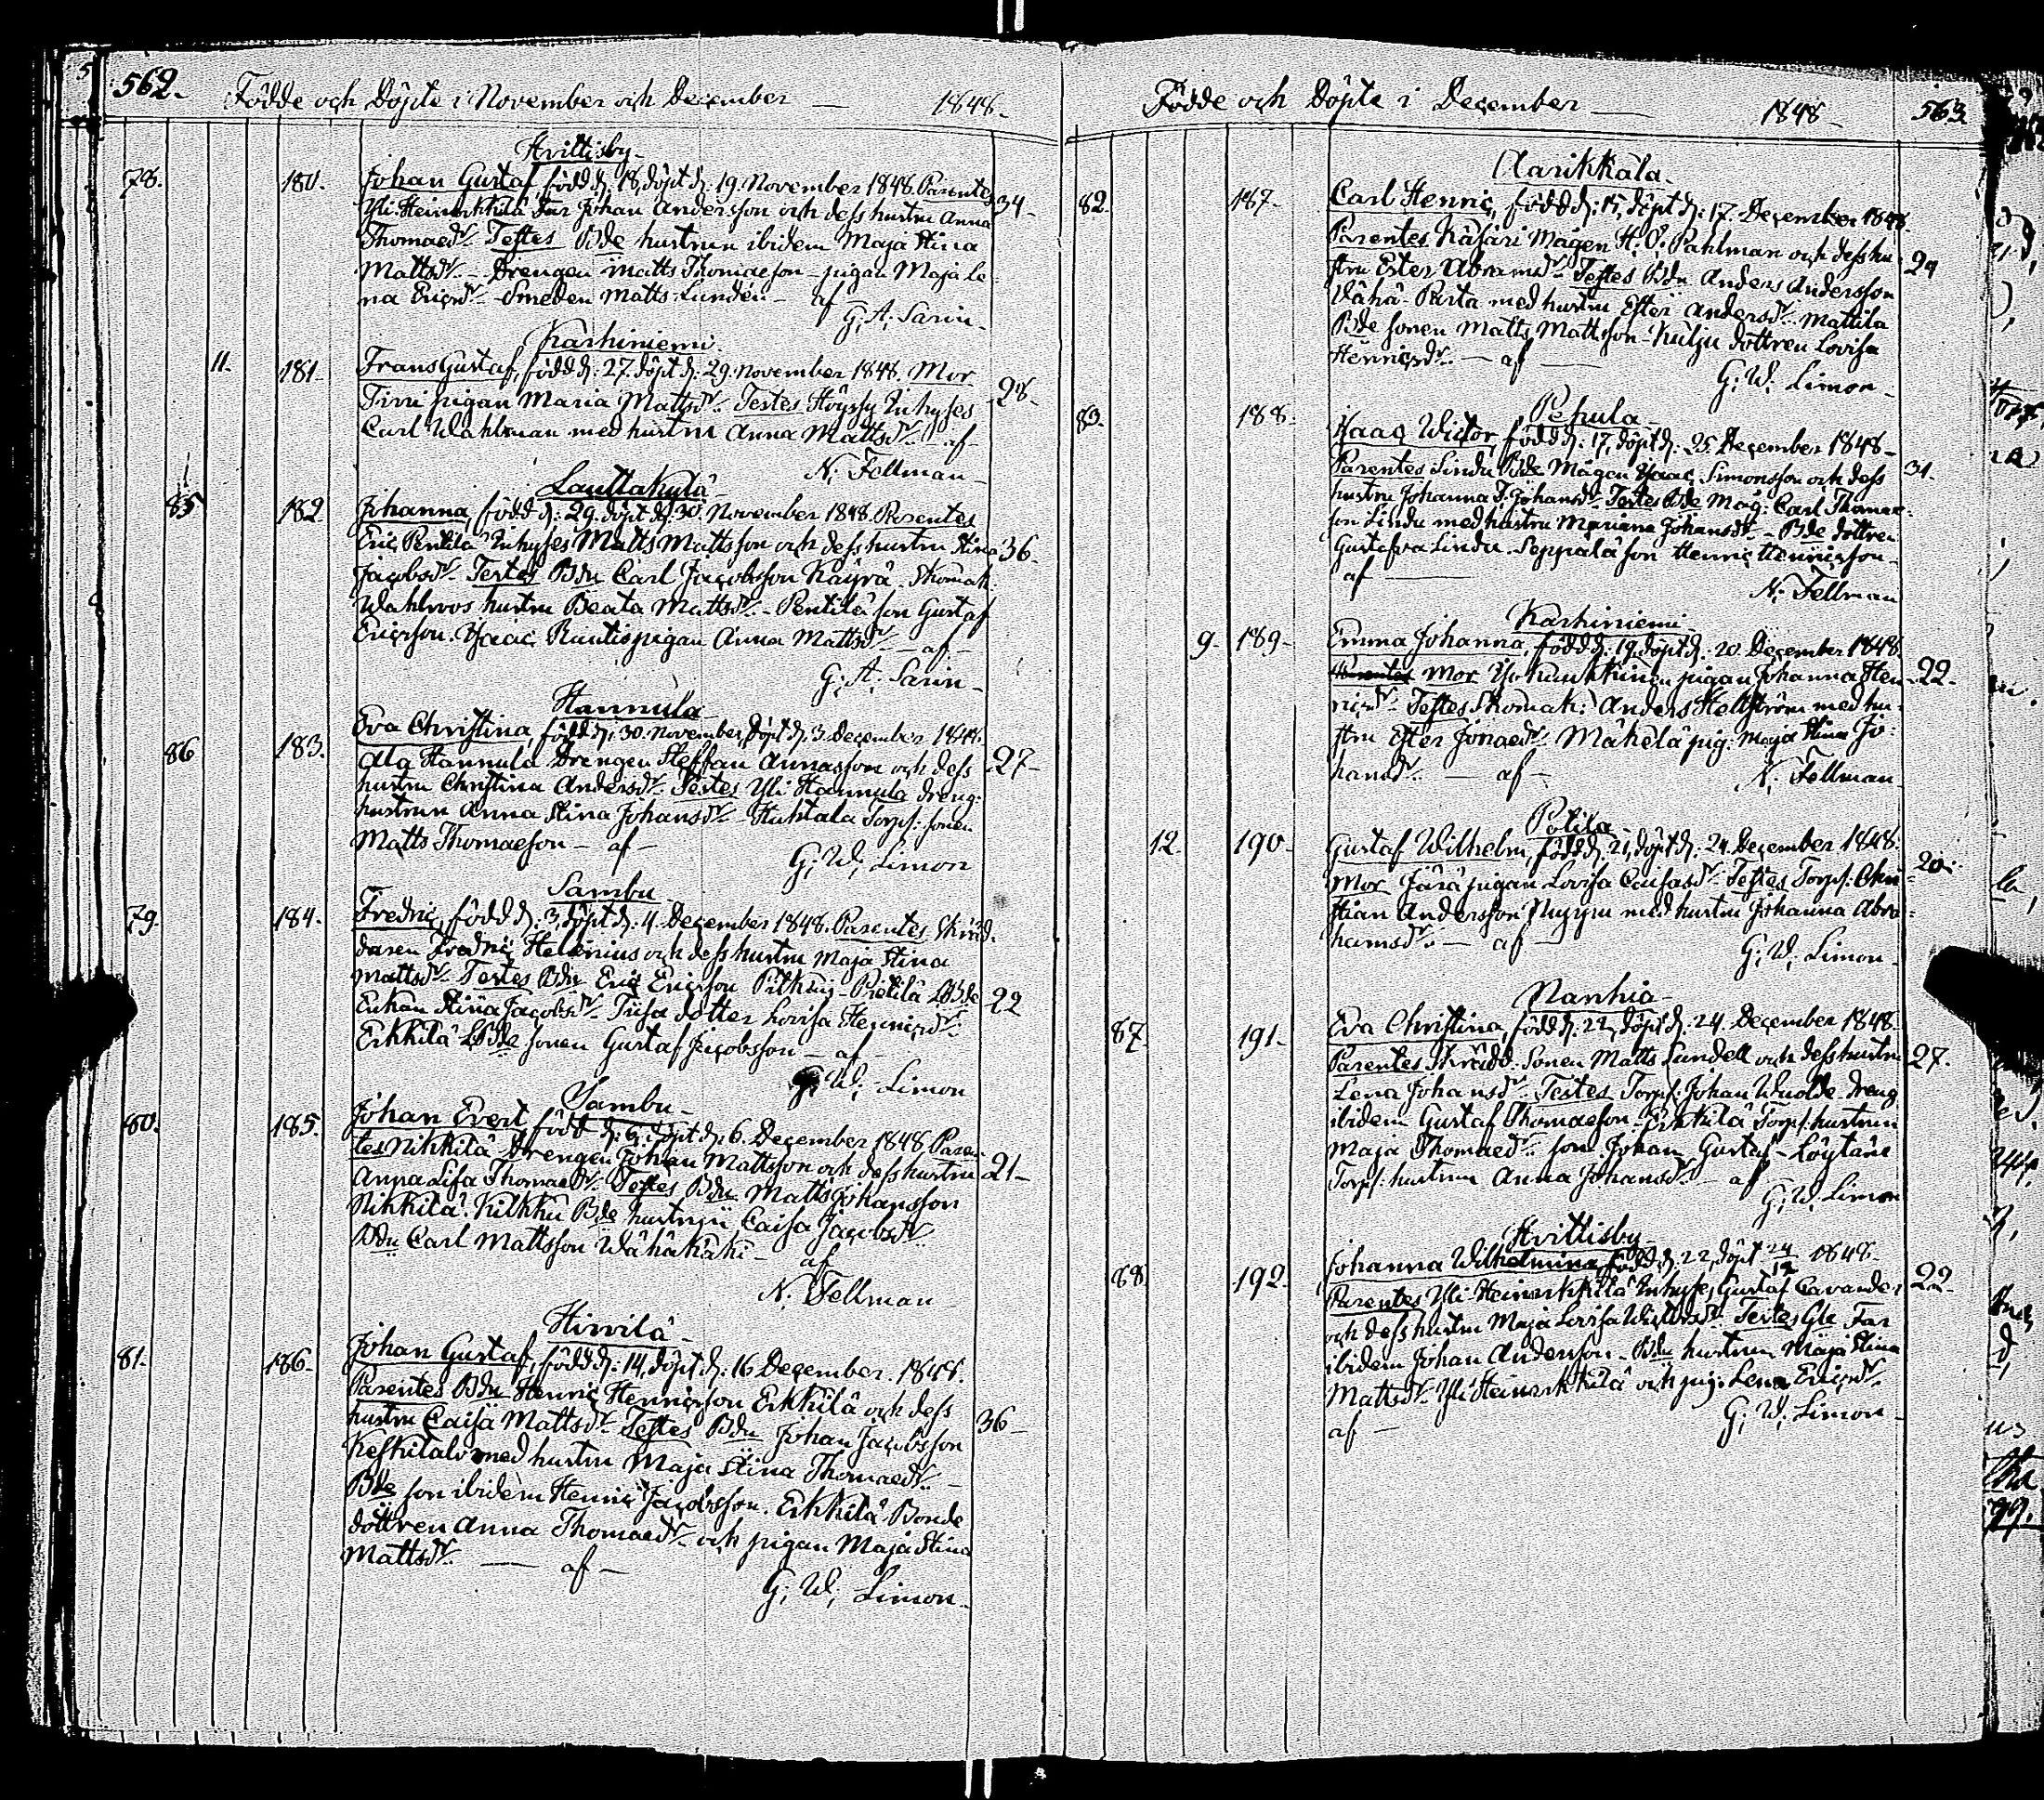 562. Födde och Döpte i November och December — 1848.
Hvittisby
78. 180. Johan Gustaf född d: 18, döpt d: 19. November 1848. Parentes 34
Yli Heinikkilä Far Johan Andersson och dess hustru Anna
Thomaedr. Testes Bde hustrun ibidem Maja Stina
Mattsdr. Drengen Matts Thomaeson – pigan Maja Le
na Ericsdr. Smeden Matts Lundén – af –
G: A: Sarin
Karhiniemi
11. 181. Frans Gustaf, född d: 27. döpt d: 29. November 1848. Mor 28
Tirri pigan Maria Mattsdr. Testes Inhyses
Carl Wahlman med hustru Anna Mattsdr. af
N: Fellman
Lauttakylä
85 182. Johanna född d: 29. döpt d: 30. November 1848. Parentes
Eric Pentilä Inhyses Matts Mattsson och dess hustru Stina 36
Jacobsdr. Testes Bdn Carl Jacobsson Käyrä. Skomak.
Wahlroos hustru Beata Mattsdr. Pentilä son Gustaf
Ericsson. Isaac Rautio pigan Anna Mattsdr. – af –
G: A: Sarin
Hannula
86 183. Eva Christina, född d: 30. November, döpt d: 3. December 1848.
Ala Hannula Drengen Steffan Annasson och dess 27
hustru Christina Andersdr. Testes Yli Hannula dreng:
hustrun Anna Stina Johansdr. Huhtala Torp: sonen
Matts Thomaeson – af –
G: W: Limon
Sambu
79. 184. Fredric, född d: 3, döpt d: 4. December 1848. Parentes Skräd.
daren Fredric Helenius och dess hustru Maja Stina
Mattsdr. Testes Bdn Eric Ericsson – Prētilä Bde 22
Enkan Stina Jacobsdr. dotter Lovisa Henricsdr.
Erkkilä Bde sonen Gustaf Jacobsson – af –
G: W: Limon
Sambu
80. 185. Johan Evert född d: 5, döpt d: 6. December 1848 Paren
tes Nikkilä Drengen Johan Mattsson och dess hustru 21
Anna Lisa Thomaedr. Testes Bdn Matts Johansson
Nikkilä. Kilkku Bde hustrun Caisa Jacobsdr.
Bdn Carl Mattsson Wähäkäki
af
N: Fellman
Hirvilä
81. 186. Johan Gustaf, född d: 14, döpt d: 16 December. 1848.
Parentes Bdn Henric Henricsson Erkkilä och dess
hustru Caisa Mattsdr. Testes Bdn Johan Jacobsson 36
Keskitalo med hustru Maja Stina Thomaedr. –
Bde son ibidem Henric Jacobsson. Erkkilä Bonde
dottren Anna Thomaedr. och pigan Maja Stina
Mattsdr. — af –
G: W: Limon
Födde och Döpte i December — 1848 563
Karikkala
82. 187. Carl Henric, född d: 15, döpt d: 17. December 1848.
Parentes Käsäri Mågen H: O: Pahlman och dess hu 29
stru Ester Abramsdr. Testes Bdn Anders Andersson
Vähä-Perta med hustru Ester Andersdr. Mattila
Bde sonen Matts Mattsson – dottren Lovisa
Henricsdr. — af —
G: W: Limon
Pehula
83. 188. Isaac Victor, född d: 17, döpt d: 25. December 1848
Parentes Lindu Bde Mågen Isaac Simonsson och dess 31.
hustru Johanna Johansdr. Testes Bde Måg: Carl Thomae
son Lindu med hustru Mariana Johansdr. – Bde dottren
Gustafva Lindu. Seppälä son Henric Henricsson
af —
N: Fellman
Karhiniemi
9. 189. Emma Johanna, född d: 19. döpt d: 20. December 1848.
Parentes Mor pigan Johanna Hen 22
ricsdr. Testes Skomak: Anders Hellström med hu
stru Ester Jonaedr. Mäkelä pig: Maja Stina Jo
hansdr. — af – N: Fellman
Potila
12. 190. Gustaf Wilhelm, född d: 21, döpt d: 24. December 1848.
Mor Järä pigan Lovisa Caisasdr. Testes Torp: Chri 20
stian Andersson med hustru Johanna Abra
hamsdr. — af –
G: W: Limon
Nanhia
87. 191. Eva Christina, född d: 22, döpt d: 24. December 1848.
Parentes Skrädd. Sonen Matts Lundell och dess hustru 27.
Lena Johansdr. Testes Torp: Johan Wuolde dreng
ibidem Gustaf Thomaeson – Erkkilä Torp. hustrun
Maja Thomaedr. son Johan Gustaf – Löytäne
Torp: hustrun Anna Johansdr. – af
G: W: Limon
Hvittisby
88. 192. Johanna Wilhelmina, född d: 22, döpt 24/12 1848
Parentes Yli Heinikkilä Inhyses Gustaf Cavander 22
och dess hustru Maja Lovisa Victorsdr. Testes Gle Far
ibidem Johan Andersson. Bdn hustrun Maja Stina
Mattsdr. Yli Heinikkilä och pig: Lena Ericsdr.
af — G: W: Limon